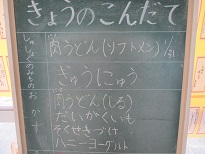 きょうのこんだて
しゅしょく
肉うどん(ソフトメン) 1/31
のみもの
ぎゅうにゅう
おかず
肉うどん(しる)
だいがくいも
そくせきづけ
ハニーヨーグルト